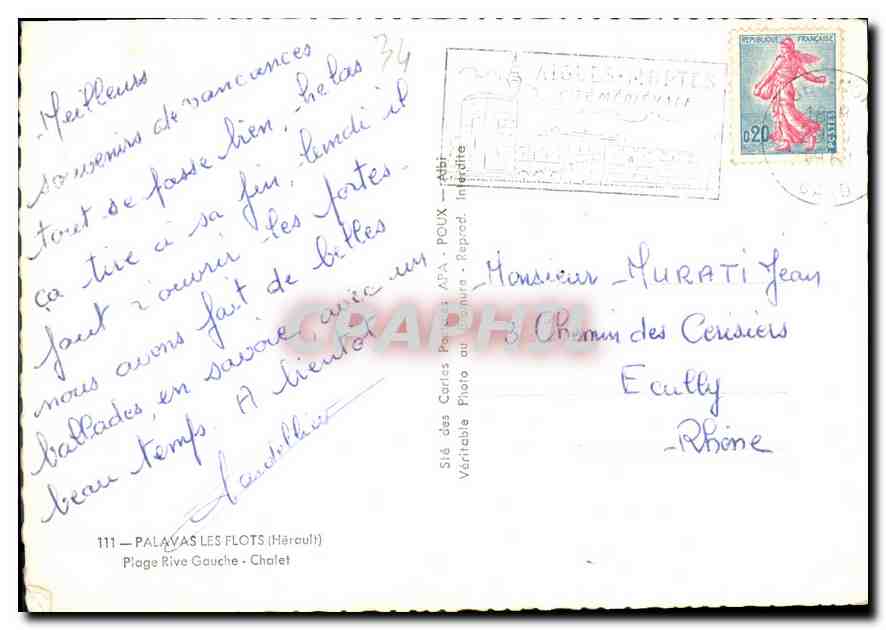 Meilleurs
souvenirs de vancances
tout se passe bien, helas
ça tire à sa fin, lundi il
faut r'ouvrir les portes.
nous avons fait de belles
ballades, en savoie, avec un
beau temps. A bientot
34
111 — PALAVAS LES FLOTS (Hérault)
Plage Rive Gauche - Chalet
Sté des Cartes Postales APA - POUX - Albi
Véritable Photo au Bromure - Reprod. Interdite
AIGUES-MORTES
CITÉ MÉDIÉVALE
REPUBLIQUE FRANÇAISE
0,20
POSTES
GARD
Monsieur MURATI Jean
3 Chemin des Cerisiers
Ecully
Rhône
CRAPHIL